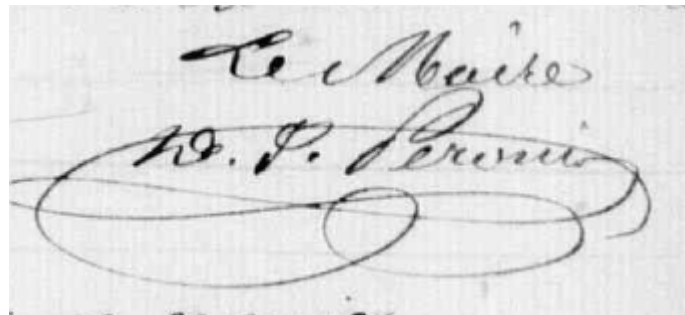 Le Maire
D. P. Peroni